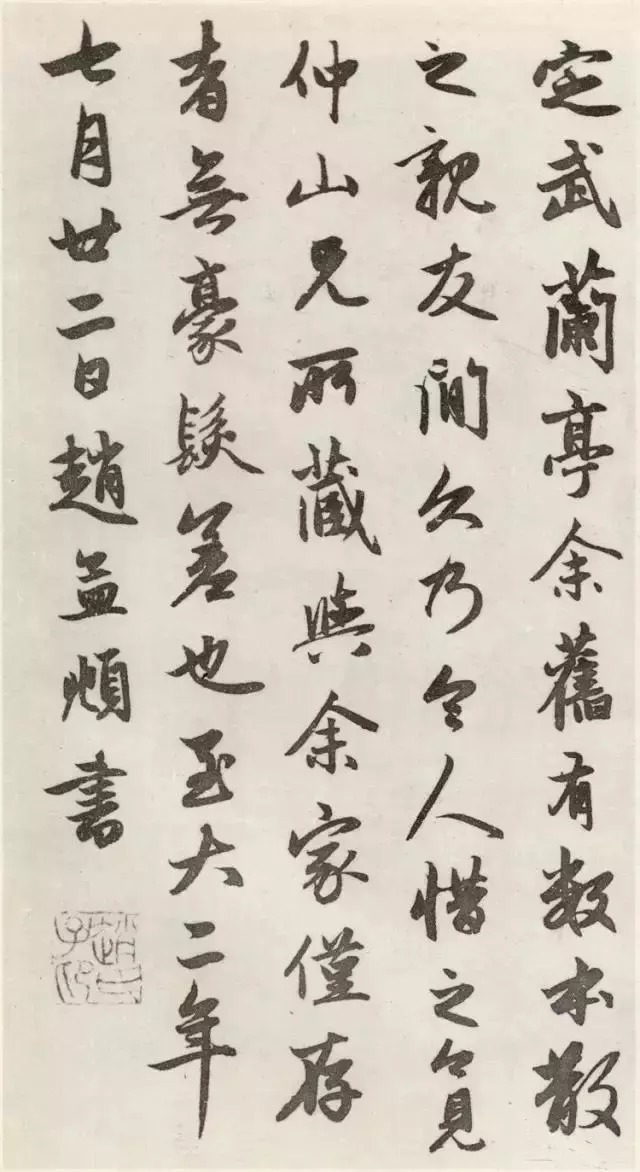 定武蘭亭余舊有数本散
之親友間久乃令人惜之今見
仲山兄所藏與余家僅存
者無豪髮差也至大二年
七月廿二日趙孟頫書
趙氏子昂